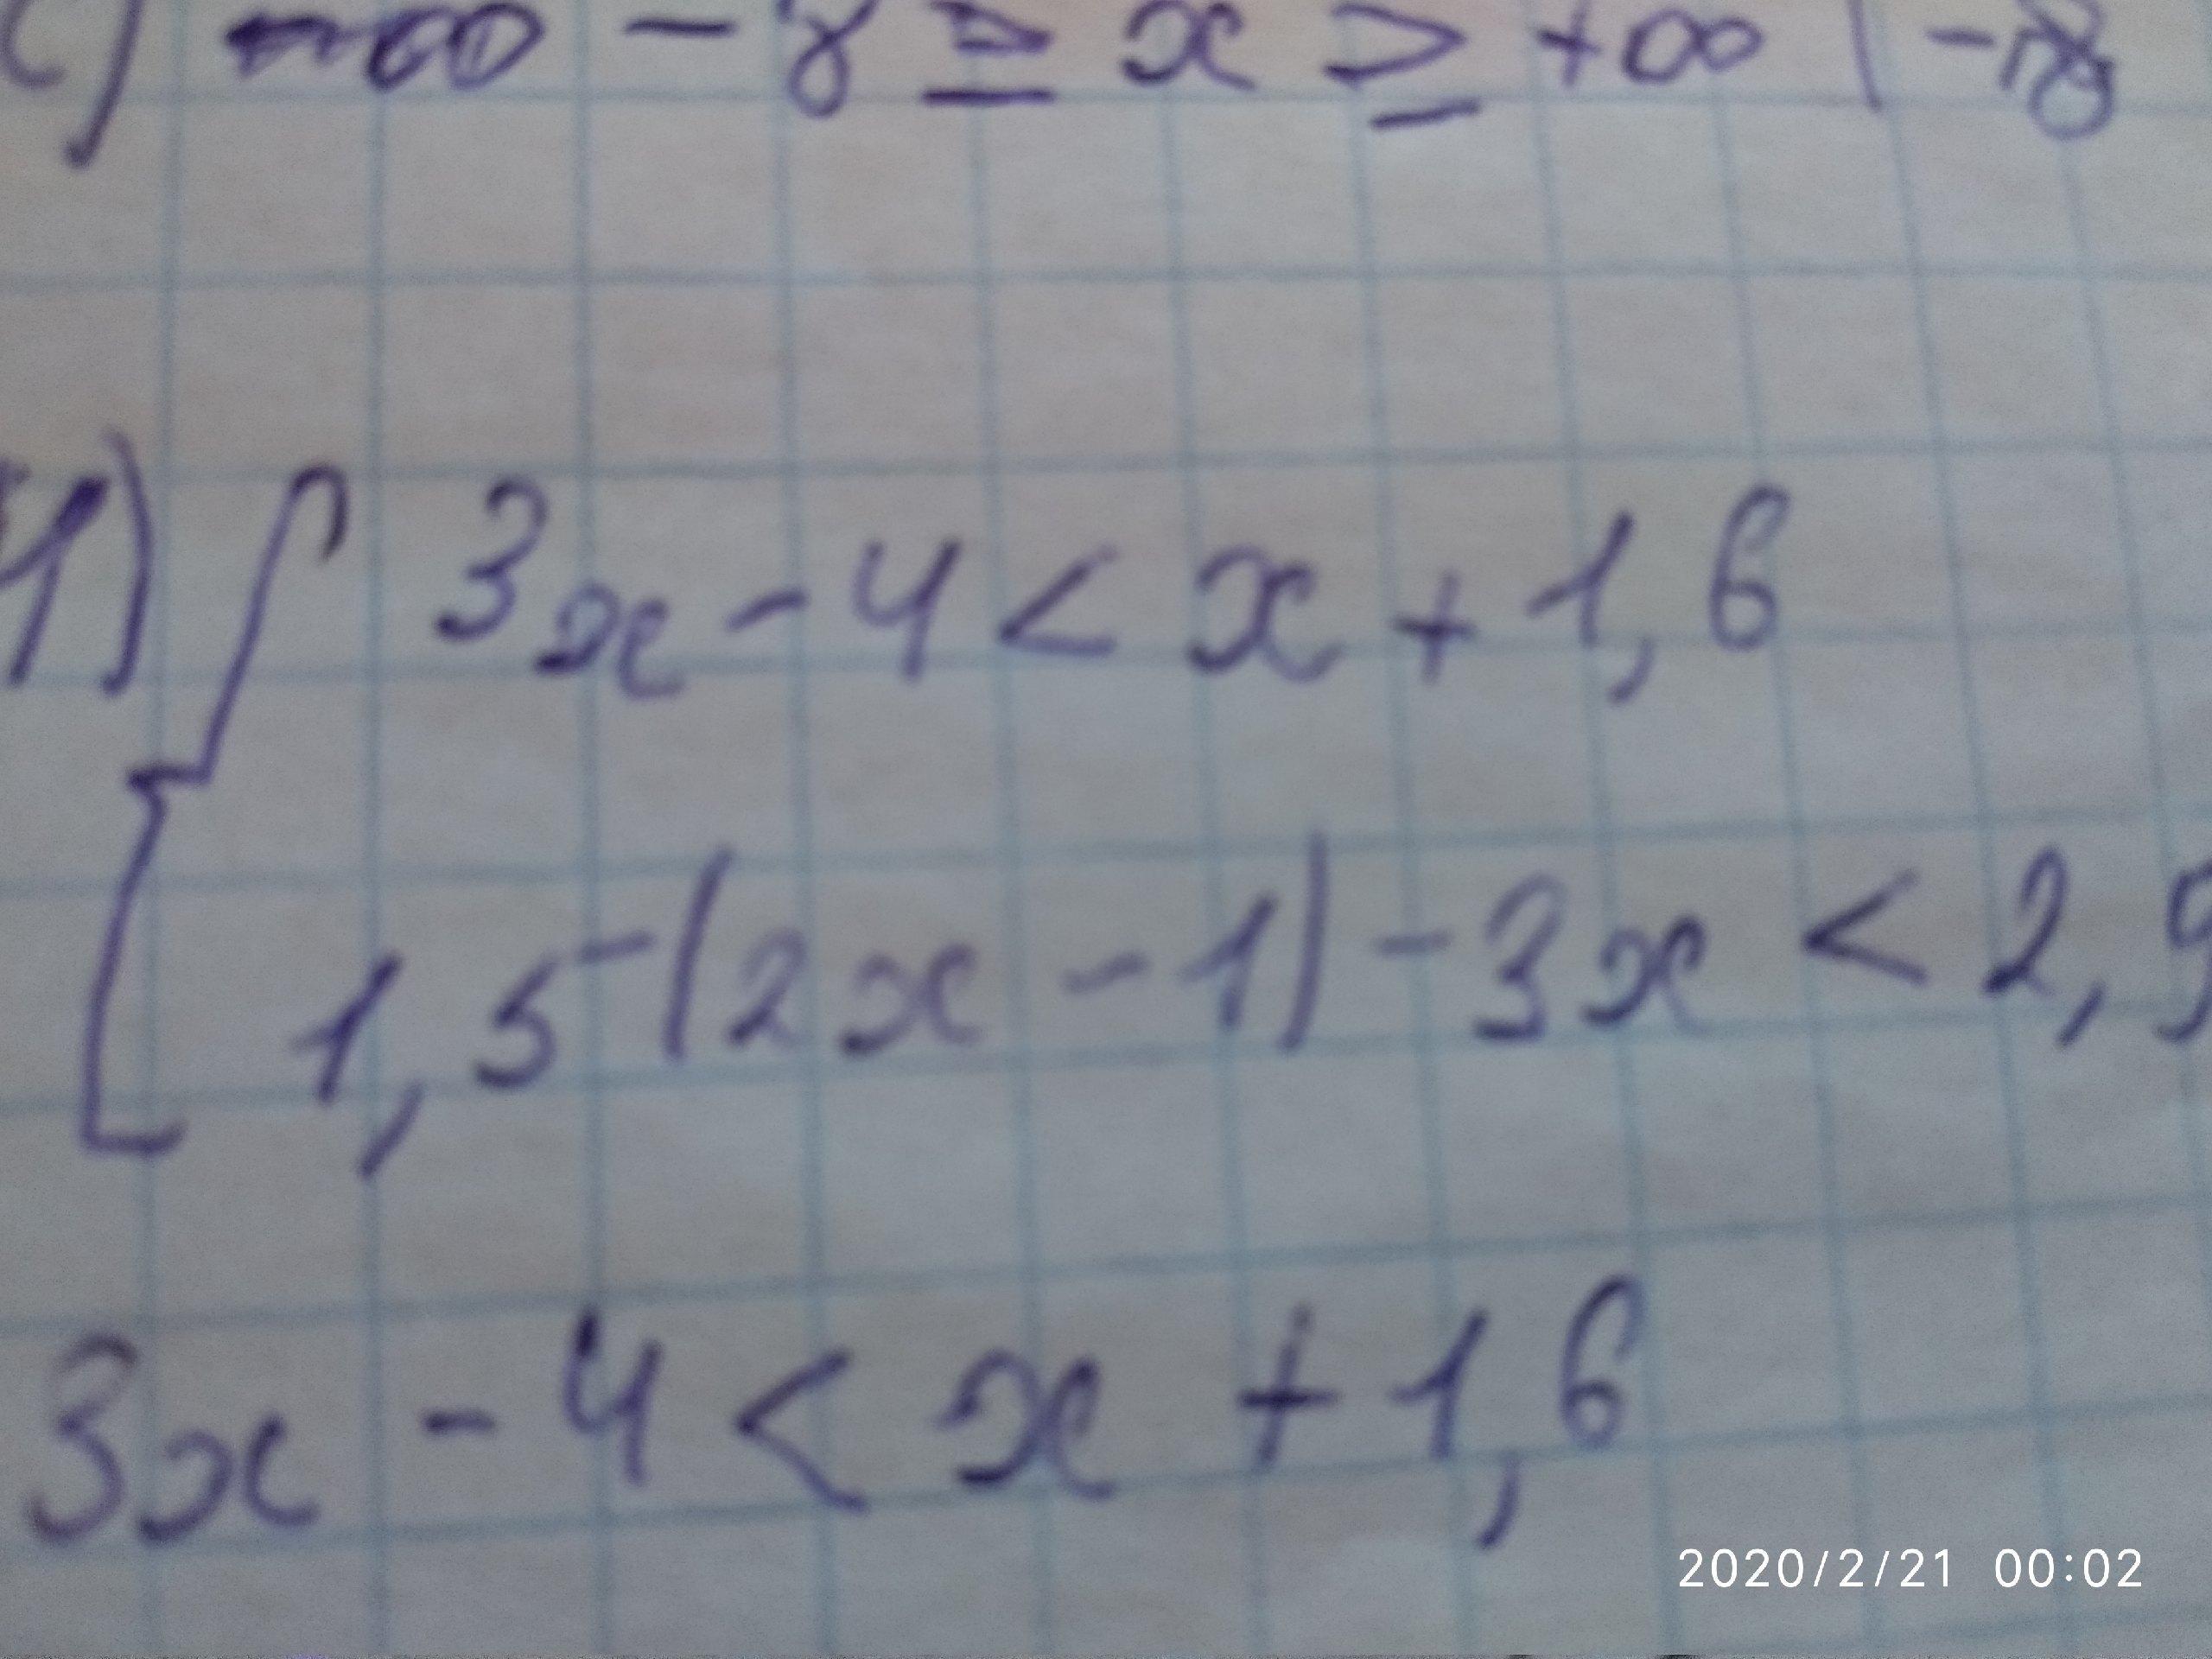 −8 ≥ x ≥ +∞
1) { 3x − 4 < x + 1,6
1,5 − (2x − 1) − 3x < 2,
3x − 4 < x + 1,6
2020/2/21 00:02